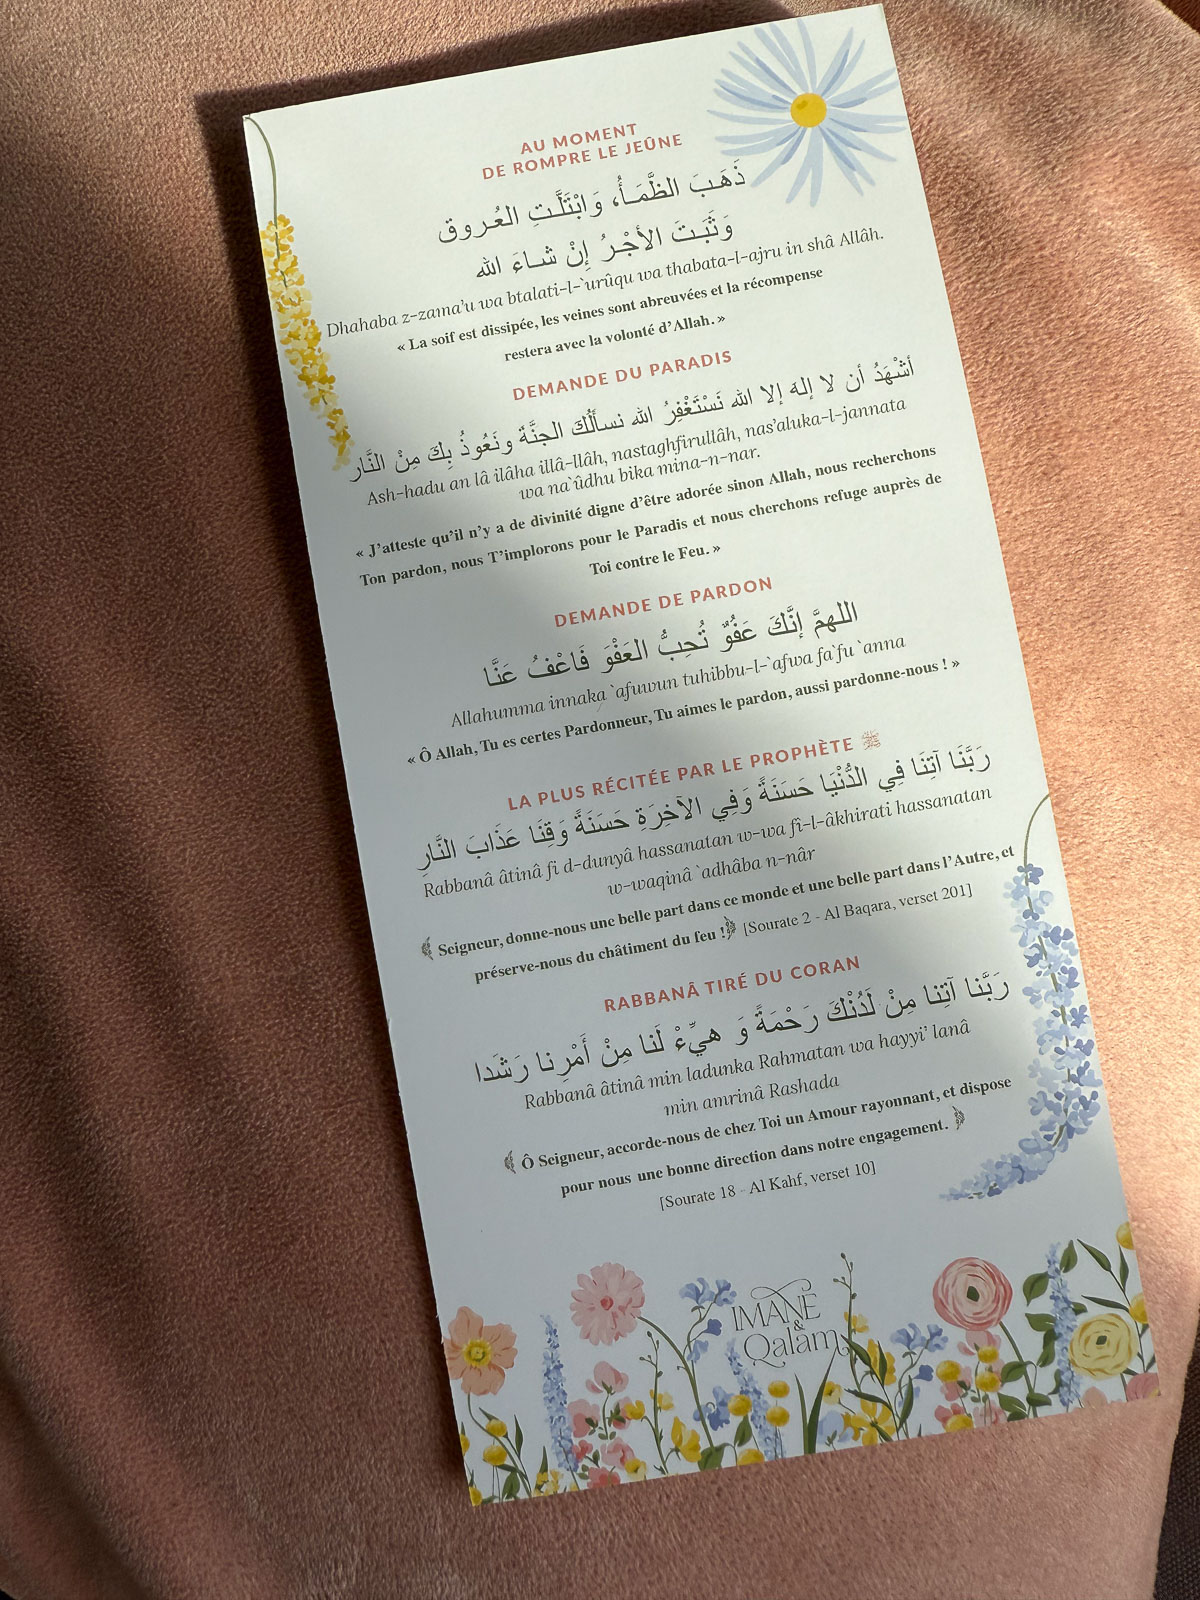 AU MOMENT
DE ROMPRE LE JEÛNE
ذَهَبَ الظَّمَأُ، وَابْتَلَّتِ العُروق
وَثَبَتَ الأجْرُ إِنْ شاءَ الله
Dhahaba z-zama'u wa btalati-l-`urûqu wa thabata-l-ajru in shâ Allâh.
« La soif est dissipée, les veines sont abreuvées et la récompense
restera avec la volonté d'Allah. »
DEMANDE DU PARADIS
أشْهَدُ أن لا إلهَ إلا الله نَسْتَغْفِرُ الله نسألُكَ الجنَّةَ ونَعُوذُ بِكَ مِنْ النَّار
Ash-hadu an lâ ilâha illâ-llâh, nastaghfirullâh, nas'aluka-l-jannata
wa na`ûdhu bika mina-n-nar.
« J'atteste qu'il n'y a de divinité digne d'être adorée sinon Allah, nous recherchons
Ton pardon, nous T'implorons pour le Paradis et nous cherchons refuge auprès de
Toi contre le Feu. »
DEMANDE DE PARDON
اللهمَّ إنَّكَ عَفُوٌّ تُحِبُّ العَفْوَ فَاعْفُ عَنَّا
Allahumma innaka `afuwun tuhibbu-l-`afwa fa`fu `anna
« Ô Allah, Tu es certes Pardonneur, Tu aimes le pardon, aussi pardonne-nous ! »
LA PLUS RÉCITÉE PAR LE PROPHÈTE ﷺ
رَبَّنَا آتِنَا فِي الدُّنْيَا حَسَنَةً وَفِي الآخِرَةِ حَسَنَةً وَقِنَا عَذَابَ النَّارِ
Rabbanâ âtinâ fi d-dunyâ hassanatan w-wa fî-l-âkhirati hassanatan
w-waqinâ `adhâba n-nâr
﴾ Seigneur, donne-nous une belle part dans ce monde et une belle part dans l'Autre, et
préserve-nous du châtiment du feu !﴿ [Sourate 2 - Al Baqara, verset 201]
RABBANÂ TIRÉ DU CORAN
رَبَّنا آتِنا مِنْ لَدُنْكَ رَحْمَةً وَ هيِّءْ لَنا مِنْ أَمْرِنا رَشَدا
Rabbanâ âtinâ min ladunka Rahmatan wa hayyi' lanâ
min amrinâ Rashada
﴾ Ô Seigneur, accorde-nous de chez Toi un Amour rayonnant, et dispose
pour nous une bonne direction dans notre engagement. ﴿
[Sourate 18 - Al Kahf, verset 10]
IMANE
&
Qalam